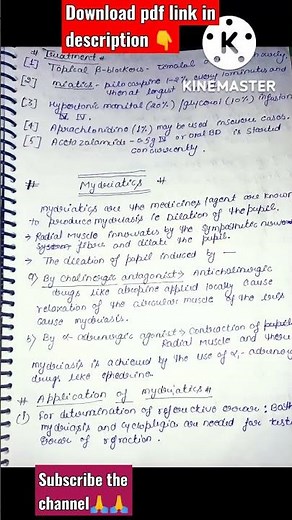 Download pdf link in
description 👇
# Treatment
[1] Topical β-blockers - Timolol
[2] miotics - pilocarpine 1-2% every 10 minutes and
then at longest
KINEMASTER
[3] Hypertonic manital (20%) /glycerol (10%) infusion
IV
[4] Apraclonidine (1%) may be used in severe cases.
[5] Acetazolamide - 0.5g IV or oral BD is started
concurrently.
# Mydriatics #
mydriatics are the medicines/agent are known
to produce mydriasis ie dilation of the pupil.
→ Radial muscle innovates by the sympathetic nervous
system fibre and dilate the pupil.
→ The dilation of pupil induced by —
a) By Cholinergic antagonist → Anticholinergic
drugs like atropine applied locally cause
relaxation of the circular muscle of the iris
cause mydriasis.
b) By α-adrenergic agonist → Contraction of pupil
Radial muscle and there
mydriasis is achieved by the use of α₁-adrenergic
drugs like ephedrine.
# Application of mydriatics #
(1) For determination of refractive error: Both
mydriasis and cycloplegia are needed for test
error of refraction.
Subscribe the
channel🙏🙏